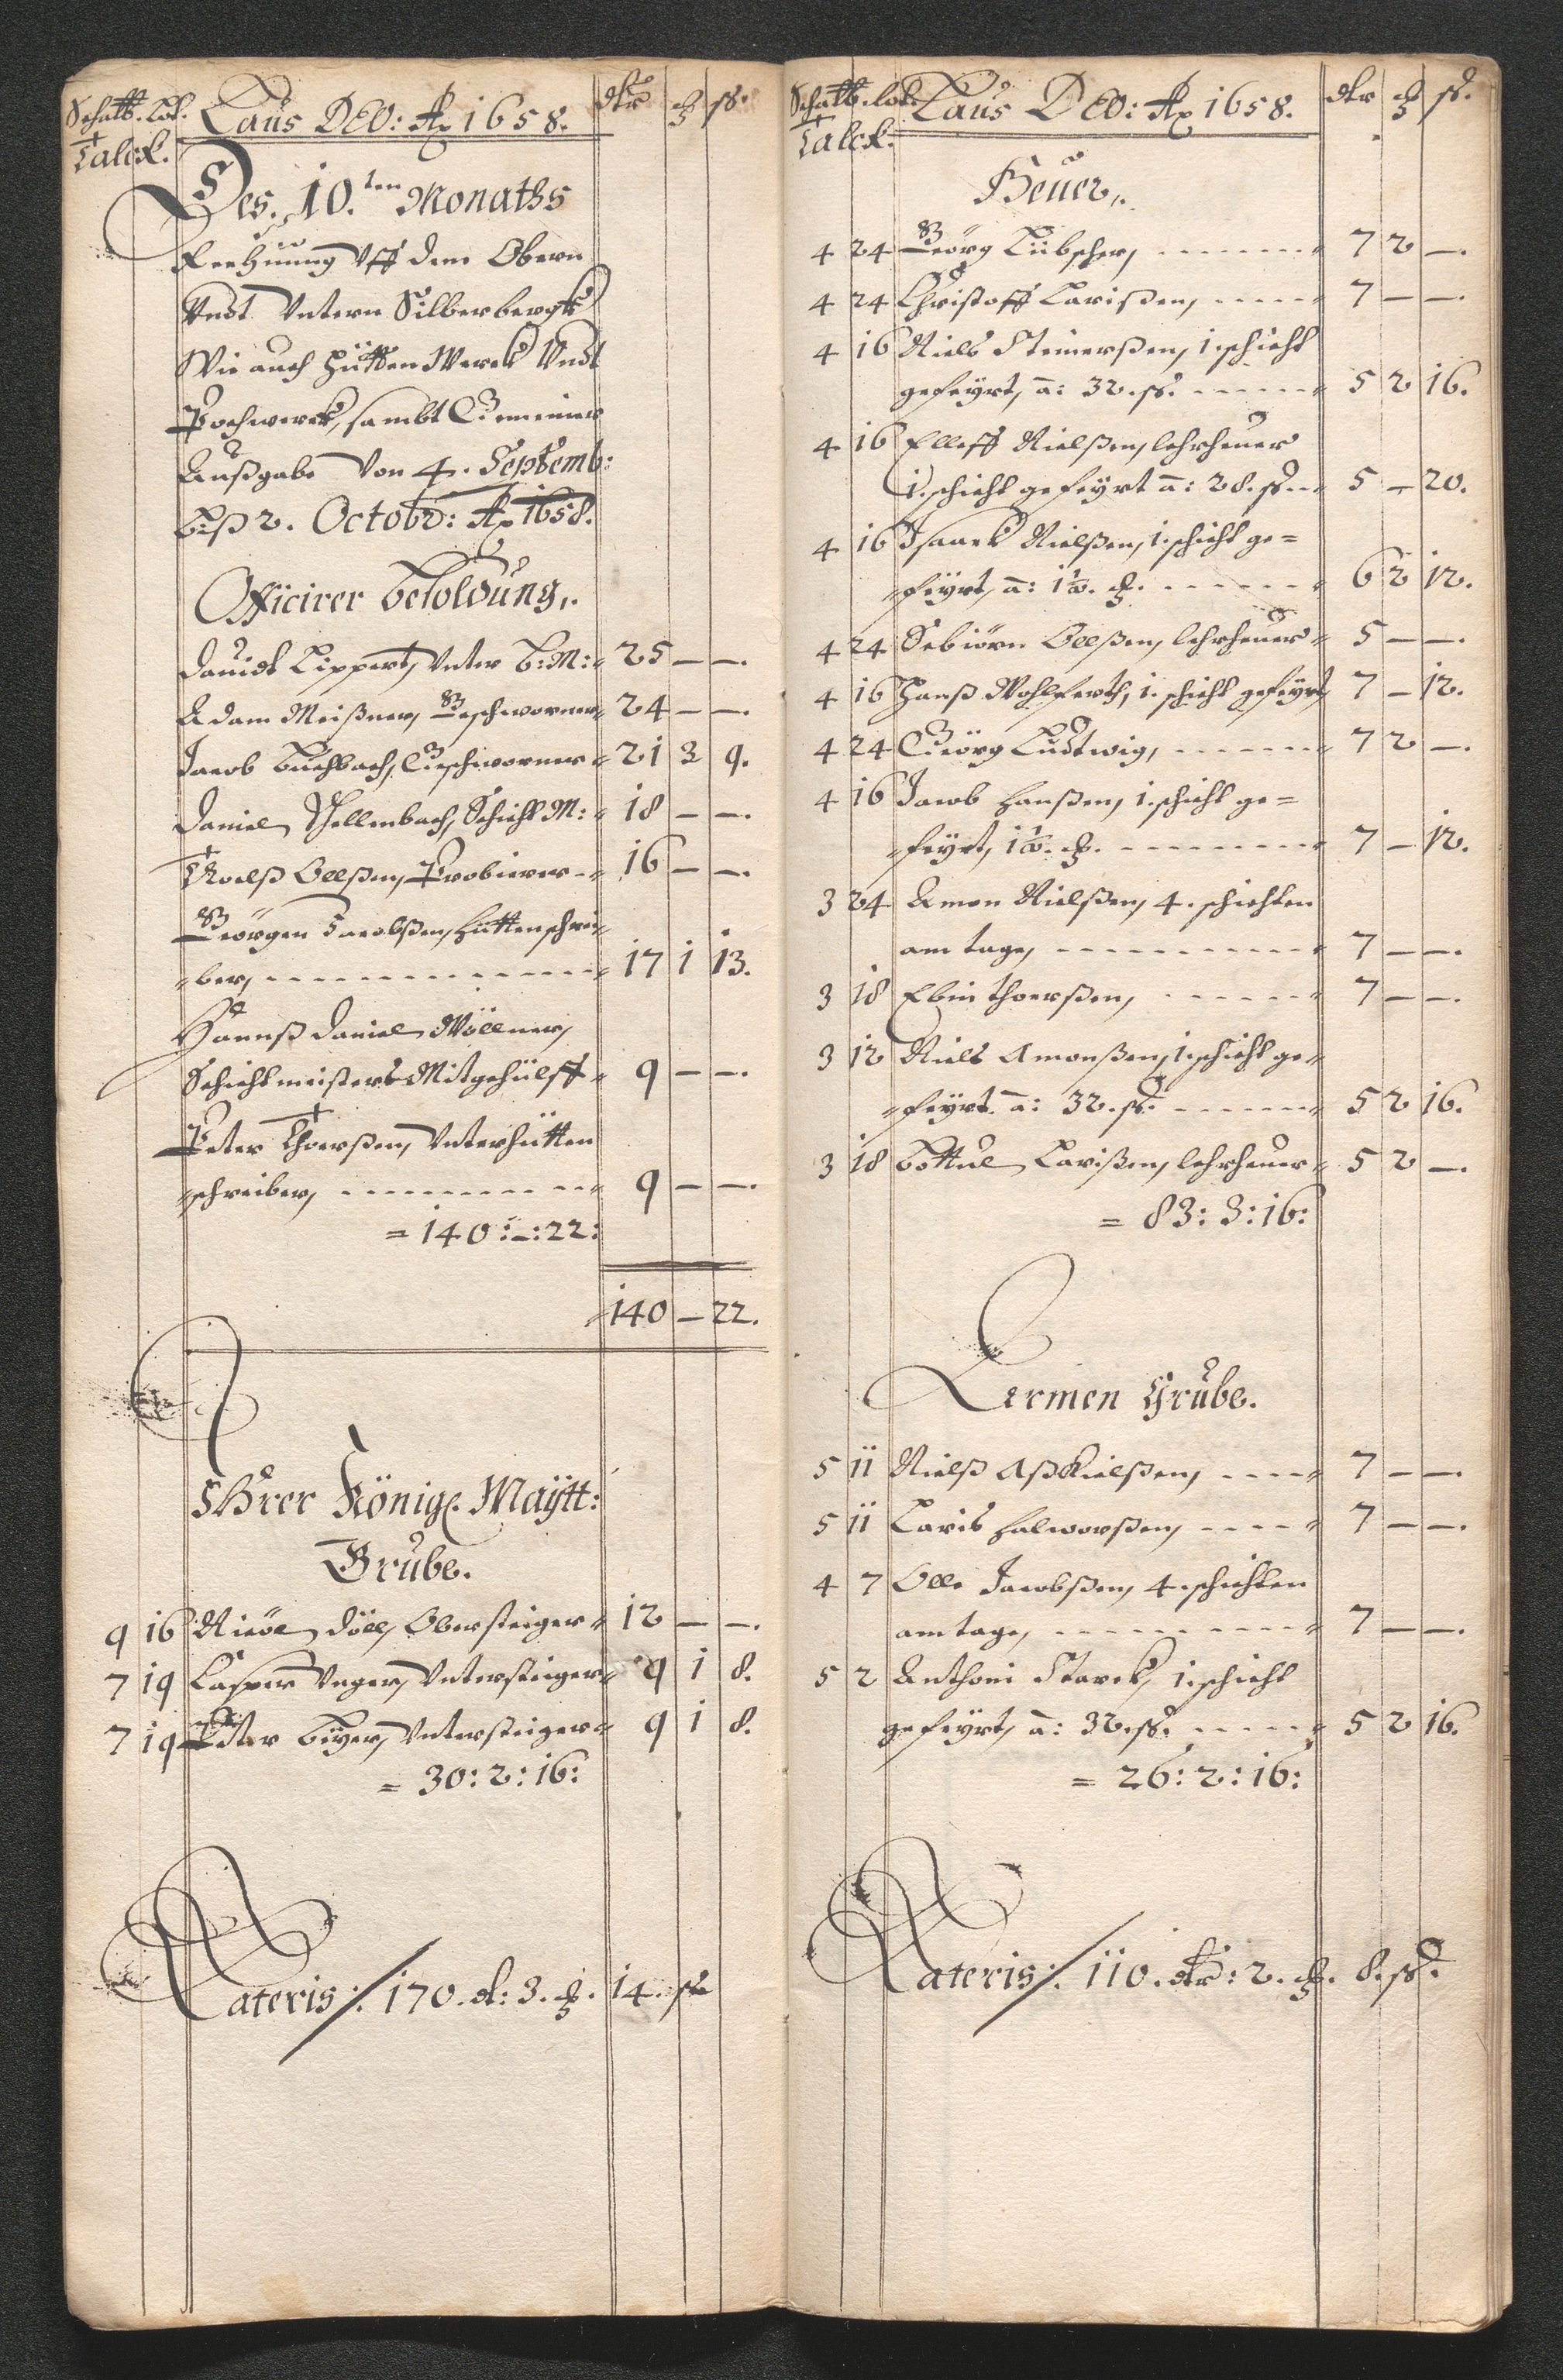 Schatt. Lot.
Talck.
Laus DEO: Ao 1658.
dlr ß.
Des 10.ten Monaths
Rechnung Uff dem Obern
Undt Untern Silberbergk
Wie auch Hütten Werck Undt
Pochwerck, sambt Gemeiner
Außgabe Von 4. Septemb:
biß 2. Octobr: Ao 1658.
Officirer besoldung.
Davidt Lippert, Unter B: M: 25 — —.
Adam Meißner, Geschworner 24 — —.
Jacob Buchbach, Geschworner 21 3 9.
Daniel Schellenbach, Schicht M: 18 — —.
Troelß Ollßen, Probierer 16 — —.
Geörgen Jacobßen, Hüttenschrei-
ber, 17 1 13.
Hannß Daniel Wöllner,
Schichtmeisters Mitgehülff 9 — —.
Peter Thorßen, Unterhütten
schreiber, 9 — —.
= 140: —: 22:
140 — 22.
Ihrer Königl. Maÿtt:
Grube.
9 16 Nicol Döll, Obersteiger 12 — —.
7 19 Casper Unger, Untersteiger 9 1 8.
7 19 Peter Beyer, Untersteiger 9 1 8.
= 30: 2: 16:
Lateris: 170. d: 3. 14. ß
Schatt. Lot.
Talck.
Laus DEO: Ao 1658.
dlr ß.
Heuer.
4 24 Geörg Lübscher, 7 2 —.
4 24 Christoff Larißen, 7 — —.
4 16 Niels Steinerßen, 1. schicht
gefeyrt, a: 32. ß. 5 2 16.
4 16 Elleff Nielßen, lehrheuer
1. schicht gefeyrt a: 28. ß. 5 — 20.
4 16 Isaack Nielßen, 1. schicht ge=
feyrt, a: 1½. 6 2 12.
4 24 Sebiörn Ollßen, lehrheuer 5 — —.
4 16 Hanß Wohlferth, 1. schicht gefeyrt, 7 — 12.
4 24 Geörg Ludtwig, 7 2 —.
4 16 Jacob Hanßen, 1. schicht ge=
feyrt, 1½. 7 — 12.
3 24 Amon Nielßen, 4. schichten
am tage, 7 — —.
3 18 Ebin Thorßen, 7 — —.
3 12 Niels Amonßen, 1. schicht ge-
feyrt. a: 32. ß. 5 2 16.
3 18 Bottul Larißen, lehrheuer 5 2 —.
= 83: 3: 16:
Lermen Grube.
5 11 Nielß Aßkielßen, 7 — —.
5 11 Laris Halworßen, 7 — —.
4 7 Olle Jacobßen, 4. schichten
am tage, 7 — —.
5 2 Anthoni Starck, 1. schicht
gefeyrt, a: 32. ß. 5 2 16.
= 26: 2: 16:
Lateris: 110. dlr: 2. 8. ß.